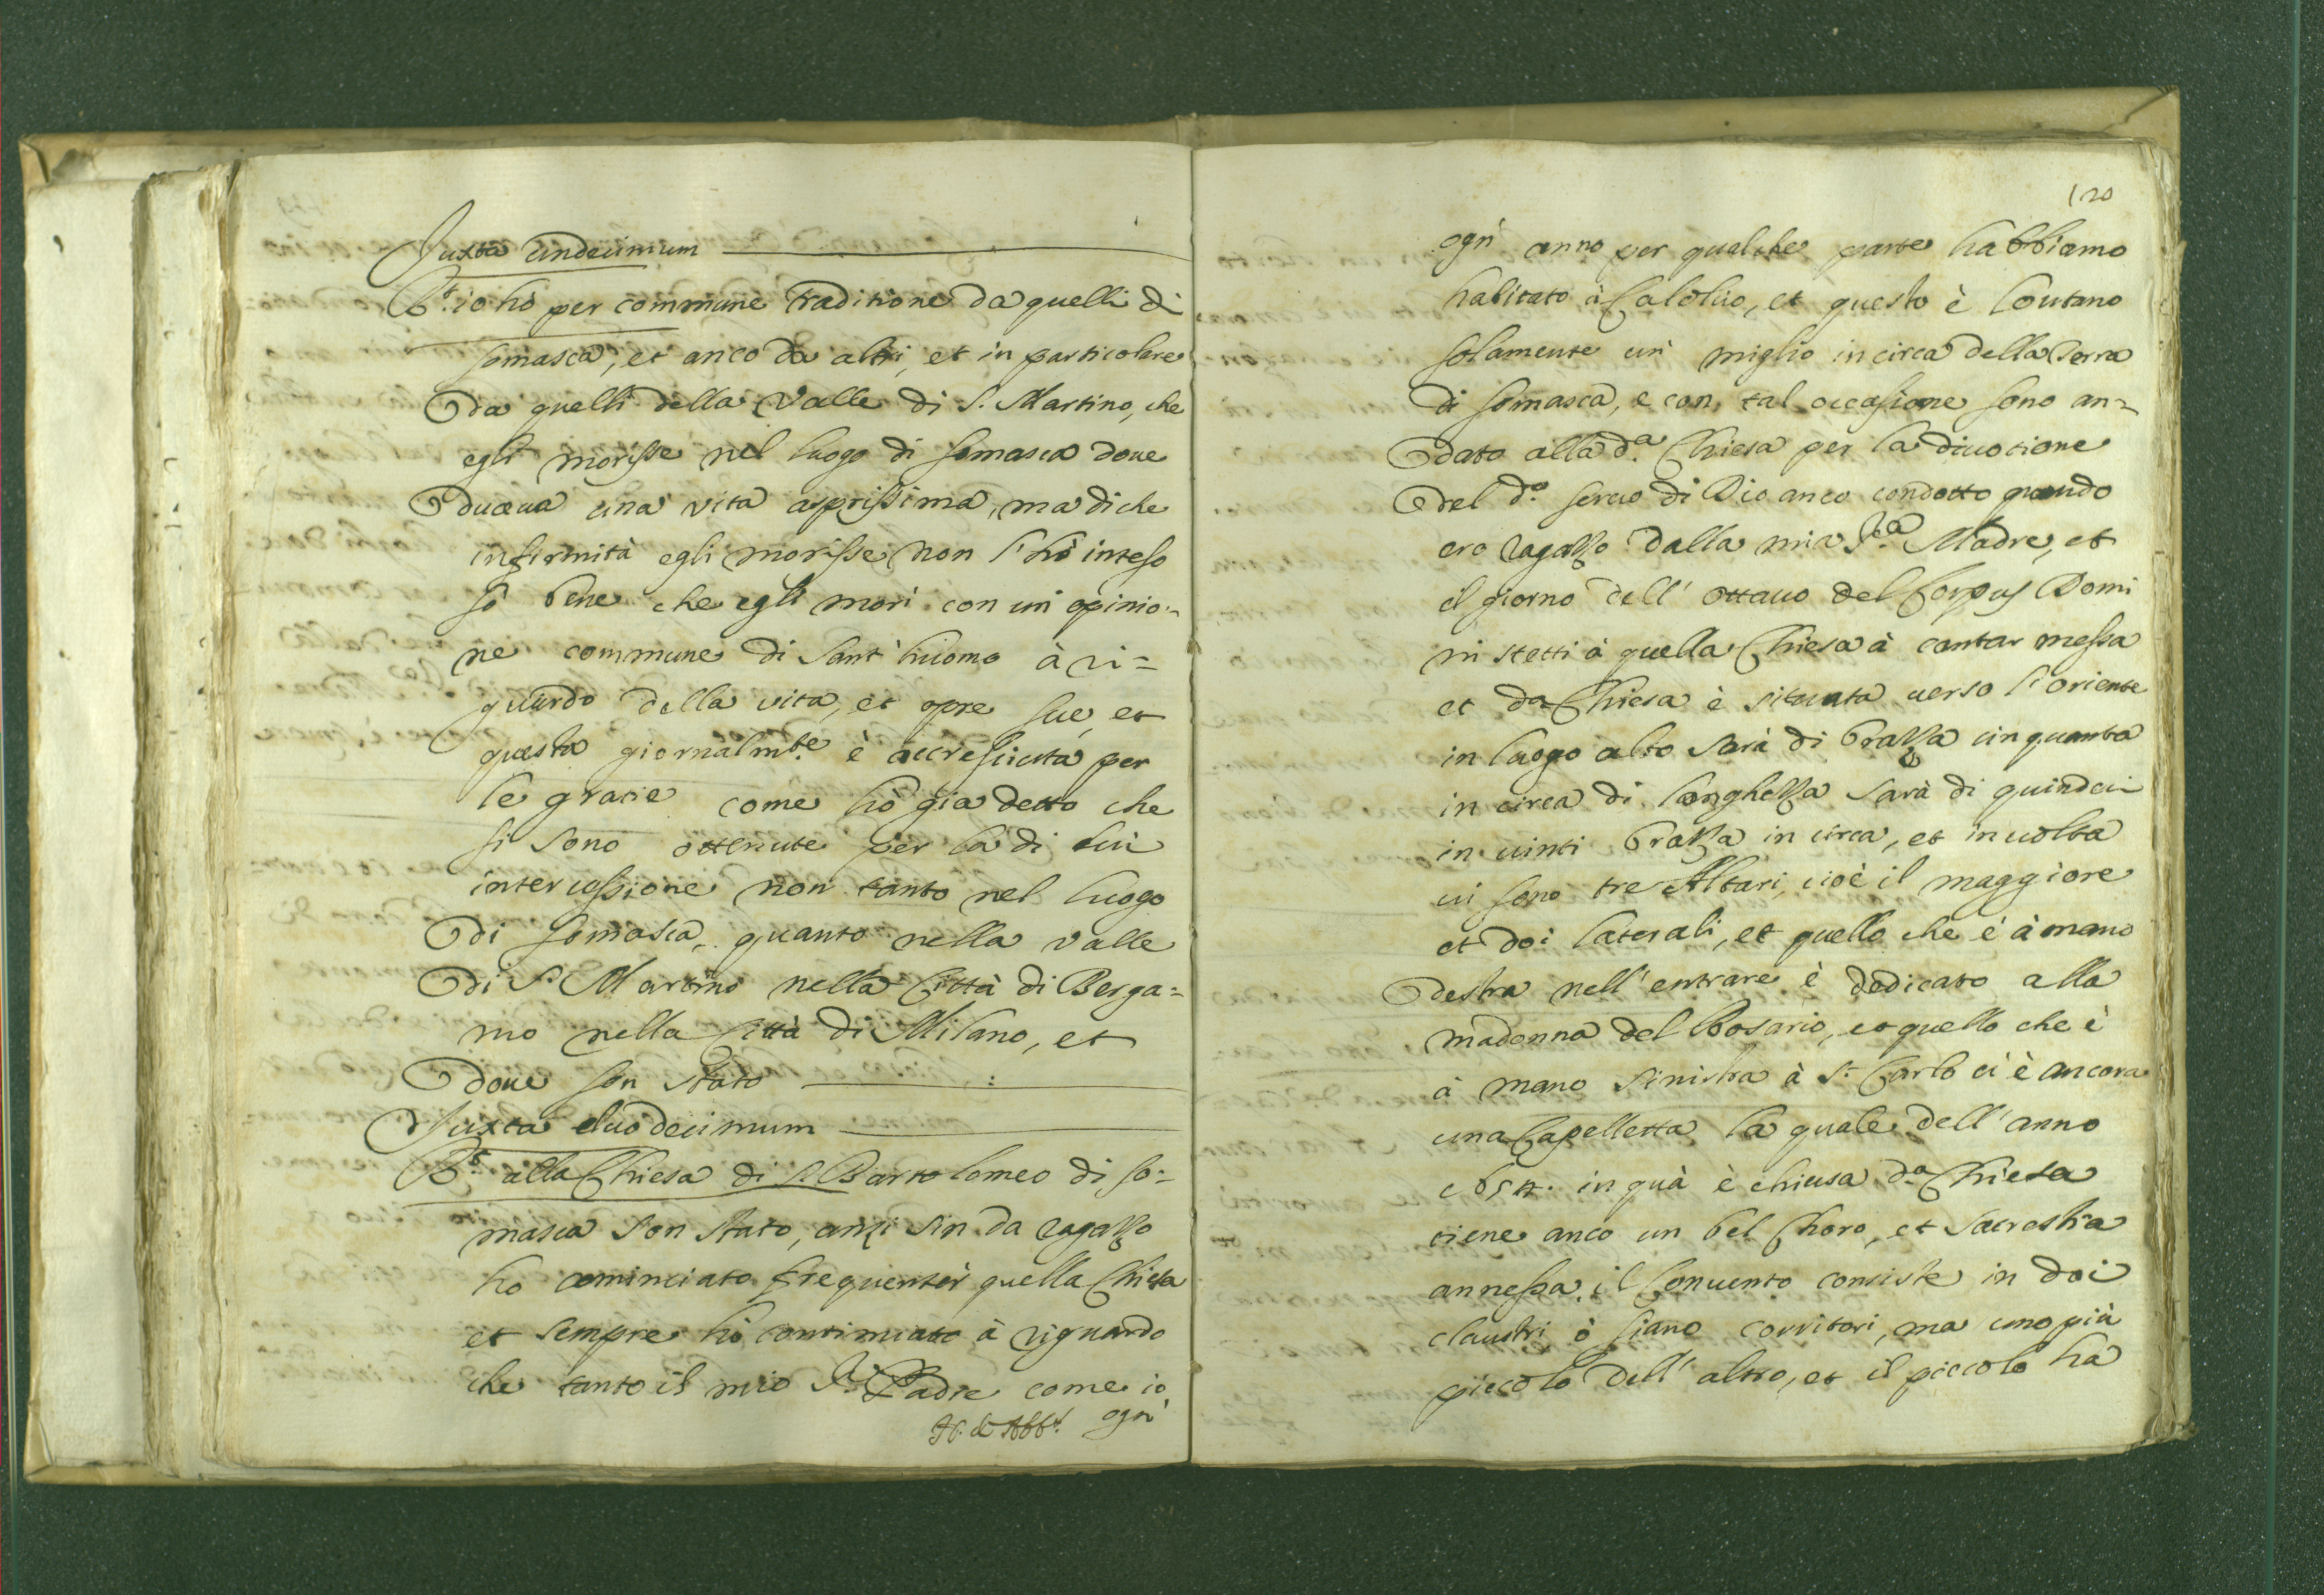 Juxta undecimum
Rt. io hò per commune traditione da quelli di
Somasca, et anco da altri, et in particolare
da quelli della Valle di S. Martino, che
egli morisse nel luogo di Somasca doue
duceua una vita asprissima, ma di che
infirmità egli morisse non l'hò inteso
sò bene che egli morì con un' opinio-
ne commune di Sant' huomo à ri=
guardo della vita, et opre sue, et
questa giornalmte. è accresciuta per
le gratie come hò già detto che
si sono ottenute per la di lui
intercessione non tanto nel luogo
di Somasca, quanto nella valle
di S. Martino nella Città di Berga=
mo nella Città di Milano, et
doue son stato
Juxta duodecimum
Rt. alla Chiesa di S. Bartolomeo di So=
masca son stato, anzi sin da ragazzo
ho cominciato frequentar quella Chiesa
et sempre hò continuato à riguardo
che tanto il mio Sr. Padre come io
ogn'
120
ogn' anno per qualche parte habbiamo
habitato à Calolzio, et questo è lontano
solamente un' miglio in circa della Terra
di Somasca, e con tal occasione sono an=
dato alla da. Chiesa per la diuotione
del do. seruo di Dio anco condotto quando
ero ragazzo dalla mia Sra. Madre, et
il giorno dell' ottauo del Corpus Domi
ni stetti à quella Chiesa à cantar messa
et da. Chiesa è situata uerso l'oriente
in luogo alto sarà di brazza cinquanta
in circa di longhezza sarà di quindeci
in uinti brazza in circa, et in uolta
ui sono tre Altari, cioè il maggiore
et doi laterali, et quello che è à mano
destra nell' entrare è dedicato alla
madonna del Rosario, et quello che è
à mano sinistra à S. Carlo ci è ancora
una Capelletta la quale dell' anno
in quà è chiusa da. Chiesa
tiene anco un bel Choro, et sacrestia
annessa, il Conuento consiste in doi
claustri ò siano corritori, ma uno più
piccolo dell' altro, et il piccolo ha